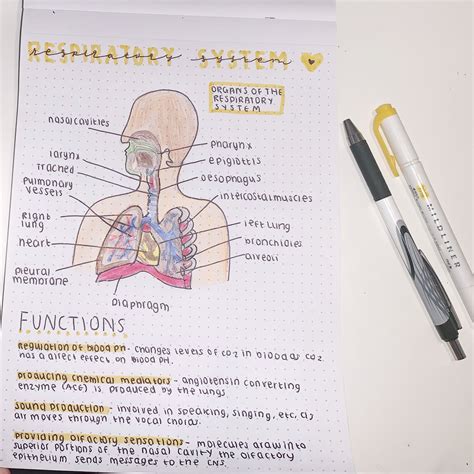 RESPIRATORY SYSTEM
respiratory system
ORGANS OF THE
RESPIRATORY
SYSTEM
nasal cavities
larynx
trachea
pulmonary
vessels
Right
lung
heart
pleural
membrane
Diaphragm
pharynx
epiglottis
oesophagus
intercostal muscles
left lung
bronchioles
alveoli
FUNCTIONS
regulation of blood pH - changes levels of CO2 in blood as CO2
has a direct effect on blood pH.
producing chemical mediators - angiotensin converting
enzyme (ACE) is produced by the lungs
sound production - involved in speaking, singing, etc, as
air moves through the vocal chords.
providing olfactory sensations - molecules drawn into
superior portions of the nasal cavity the olfactory
epithelium sends messages to the CNS.
MILDLINER